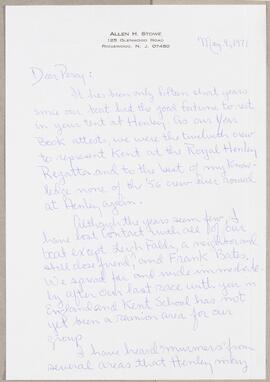 ALLEN H. STOWE
125 GLENWOOD ROAD
RIDGEWOOD, N. J. 07450
May 9, 1971
Dear Perry:
It has been only fifteen short years
since our boat had the good fortune to rest
in your tent at Henley. As our Year
Book attests, we were the twelveth crew
to represent Kent at the Royal Henley
Regatta and to the best of my know-
ledge none of the '56 crew ever rowed
at Henley again.
Although the years seem few, I
have lost contact with all of our
boat except a neighbor and
still close friend, and Frank Bates.
We spread far and wide immediate-
ly after our last race with you in
England and Kent School has not
yet been a reunion area for our
group.
I have heard "murmers" from
several areas that Henley may